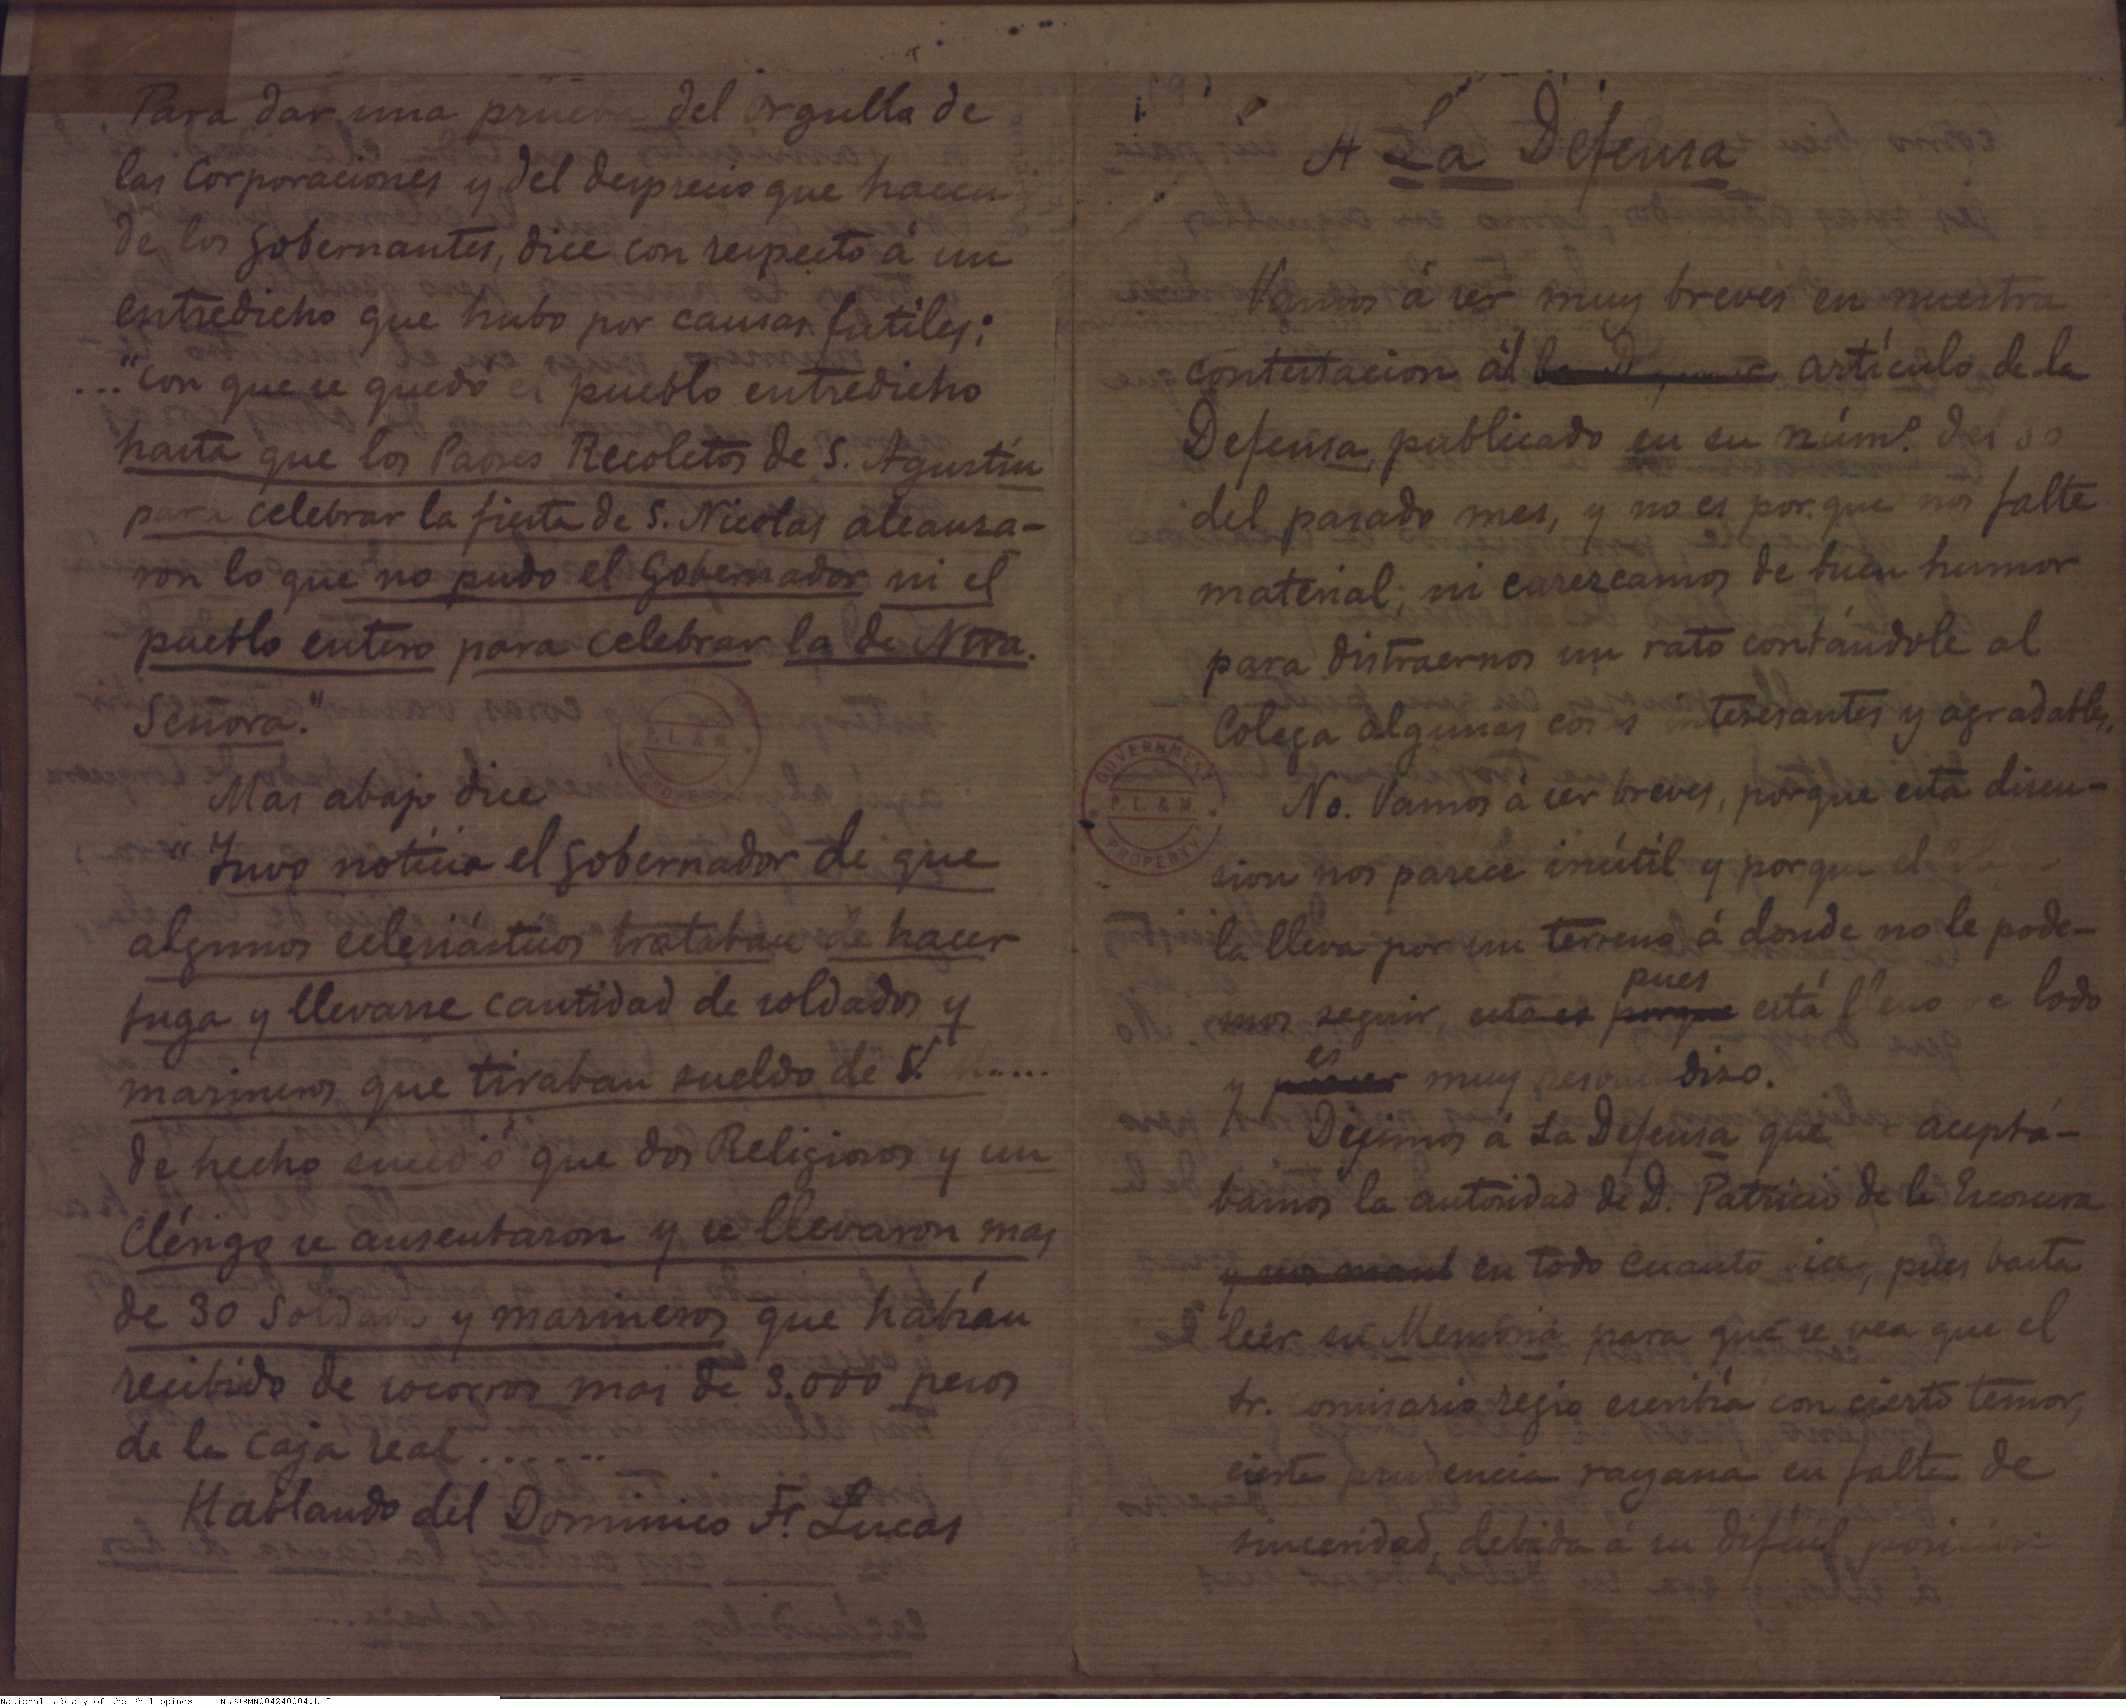 Para dar una prueba del orgullo de
las Corporaciones y del desprecio que hacen
de los gobernantes, dice con respecto á un
entredicho que hubo por causas futiles:
..."con que se quedó el pueblo entredicho
hasta que los Padres Recoletos de S. Agustin
para celebrar la fiesta de S. Nicolas alcanza-
ron lo que no pudo el Gobernador ni el
pueblo entero para celebrar la de Ntra.
Señora."
Mas abajo dice
"Tuvo noticia el gobernador de que
algunos eclesiásticos trataban de hacer
fuga y llevarse cantidad de soldados y
marineros que tiraban sueldo de S. .....
de hecho sucedió que dos Religiosos y un
Clérigo se ausentaron y se llevaron mas
de 30 soldados y marineros que habían
recibido de socorros mas de 3.000 pesos
de la caja real .......
Hablando del Dominico Fr. Lucas
A La Defensa
Vamos á ser muy breves en nuestra
contestacion ál artículo de la
Defensa, publicado en su núm.º del 30
del pasado mes, y no es porque nos falte
material, ni carezcamos de buen humor
para distraernos un rato contándole al
Colega algunas cosas interesantes y agradables.
No. Vamos á ser breves, porque esta discu-
sion nos parece inútil y porque el
la lleva por un terreno á donde no le pode-
mos seguir, esto es porque pues está lleno de lodo
y es muy resbaladizo.
Dejimos á La Defensa que aceptá-
bamos la autoridad de D. Patricio de la Escosura
en todo cuanto dice, pues basta
leer su Memoria para que se vea que el
Sr. Comisario regio escribía con cierto temor,
cierta prudencia rayana en falta de
sinceridad, debida á su difícil posición
GOVERNMENT
P.L.& M.
PROPERTY
P.L.& M.